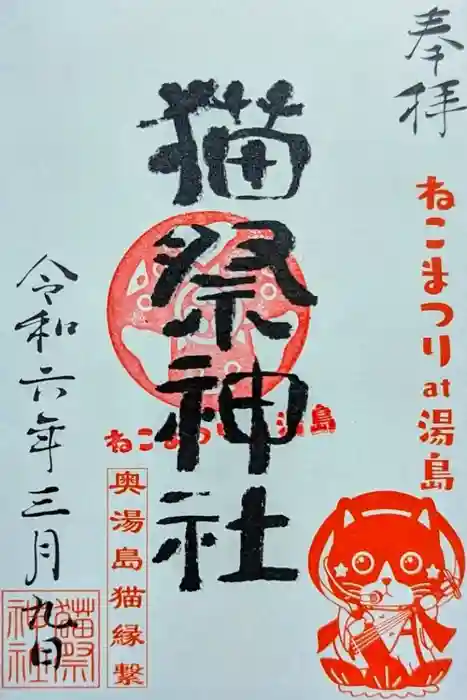 奉拝
ねこまつりat湯島
猫祭神社
ねこまつり 湯島
奥湯島猫縁繋
令和六年三月九日
猫祭神社